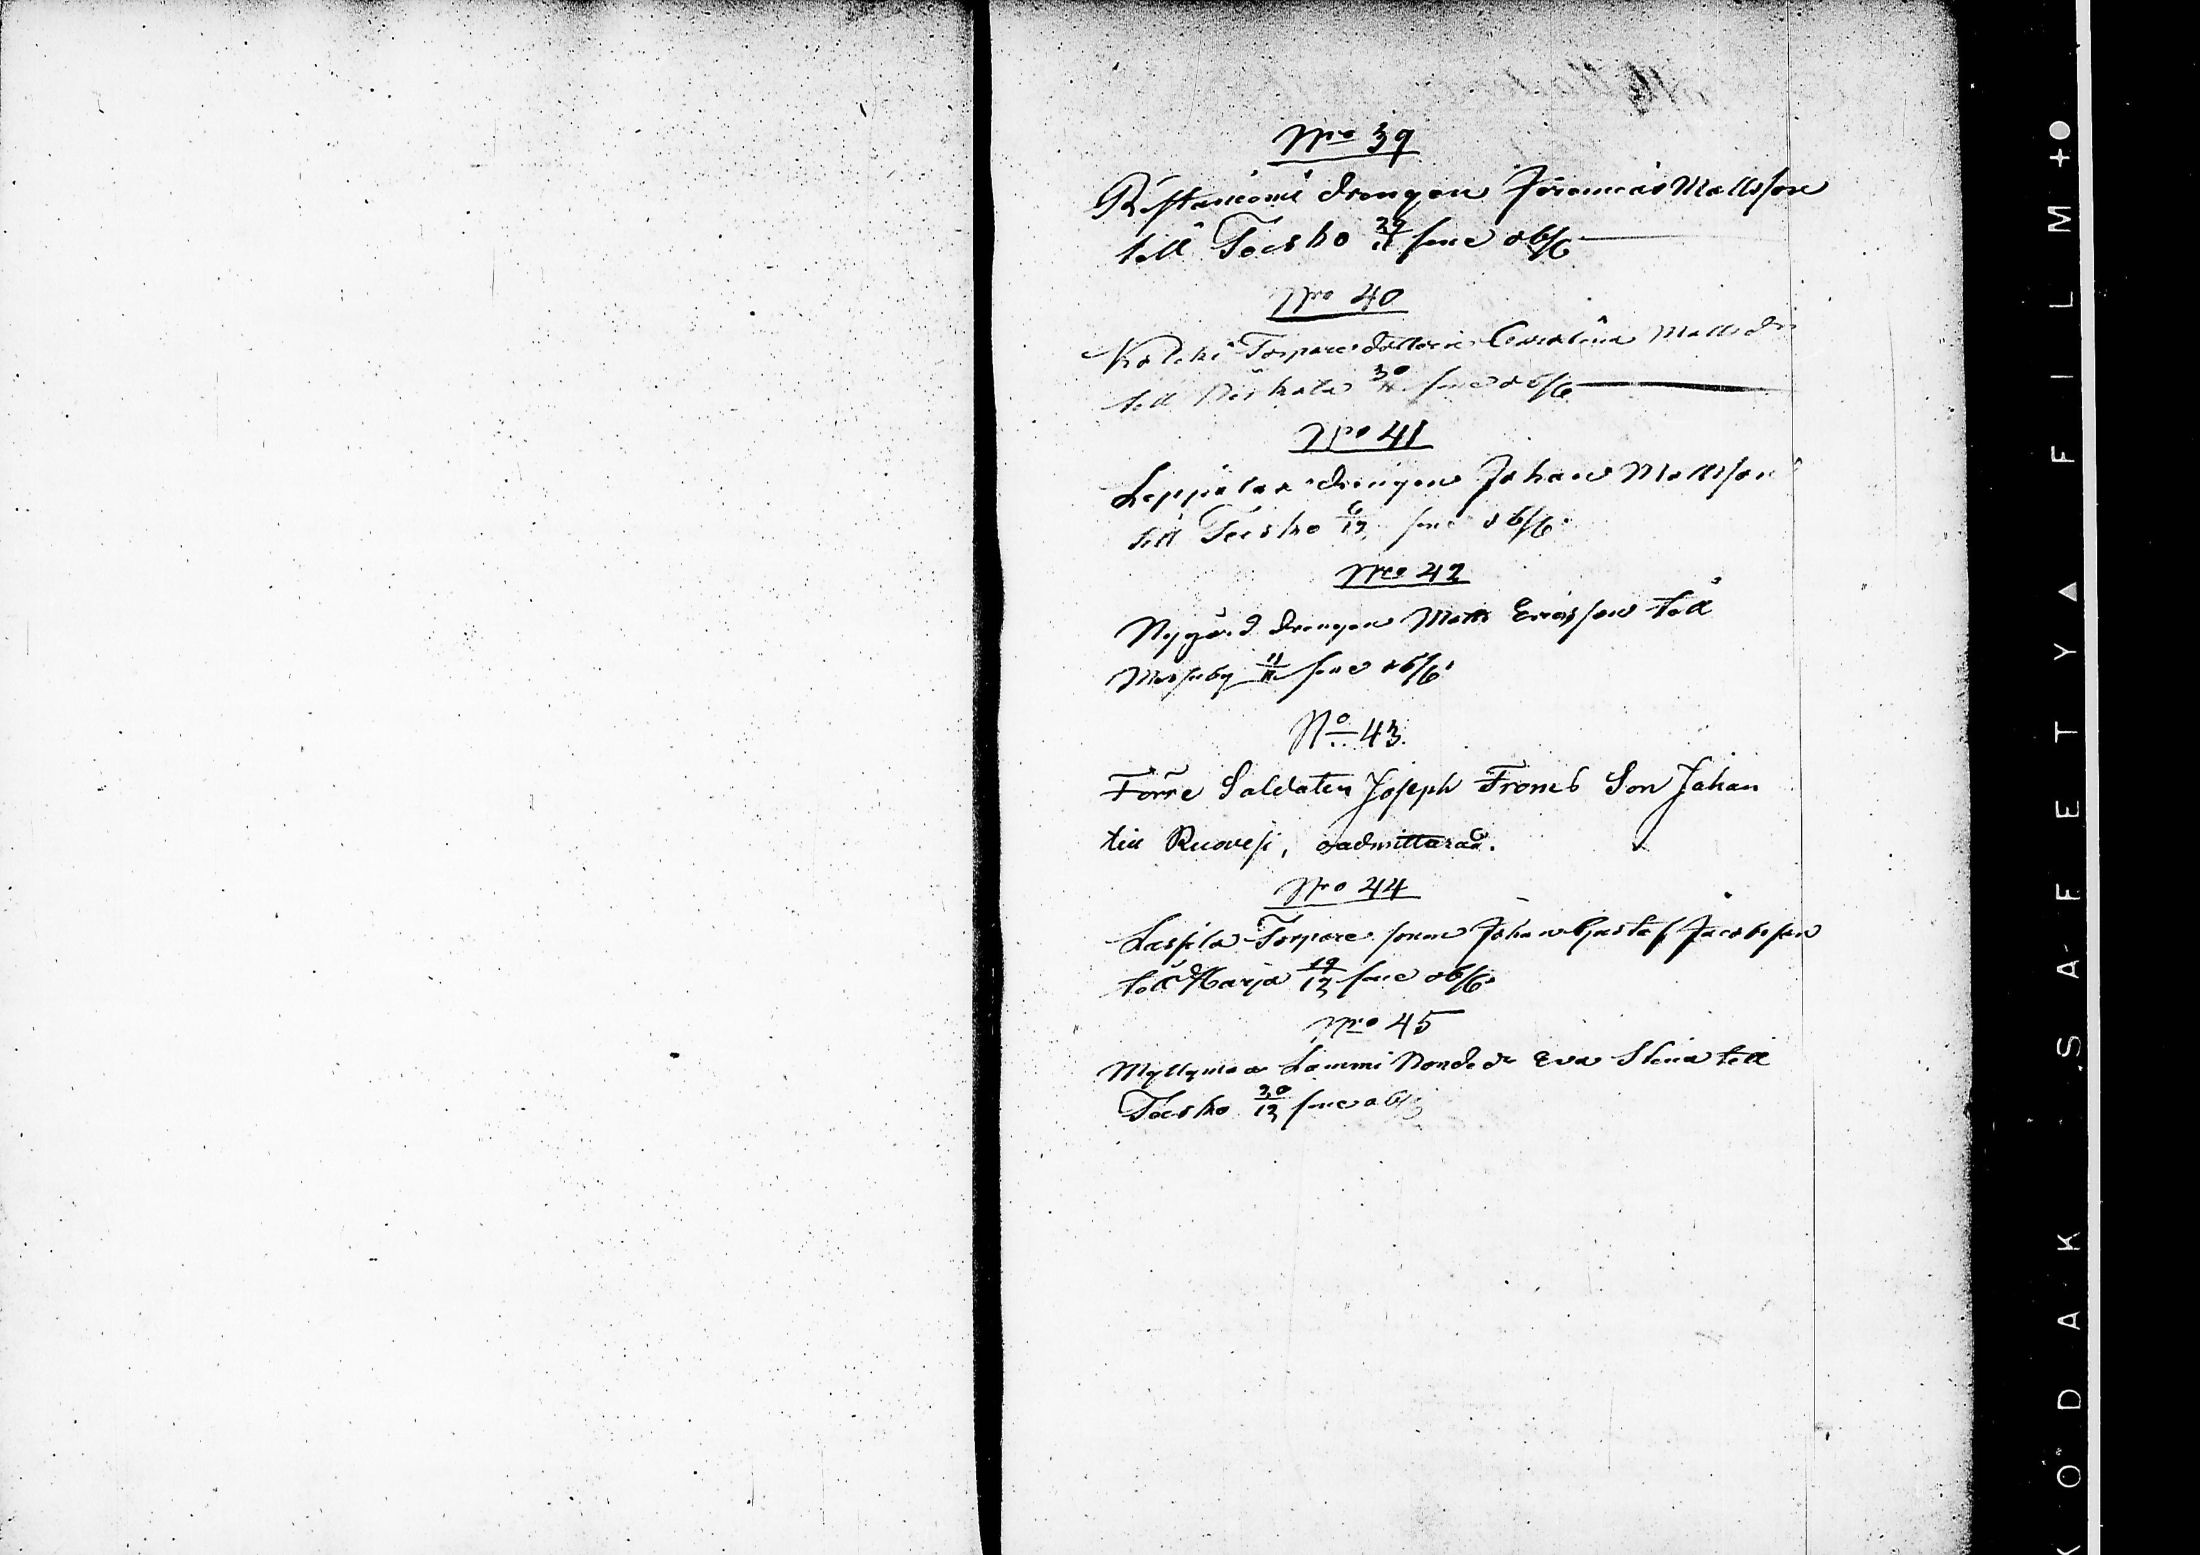 Nro 39
Ristaniemi drengen Jeremias Mattsson
till Teisko 29/11 sine obs.
Nro 40
Kolchi Torpare dottern Carolina Mattsdr
till Pirkala 30/11 sine obs.
Nro 41
Leppälax drengen Johan Mattsson
till Teisko 6/12 sine obs.
Nro 42
Nygård drengen Matts Ericsson till
11/11 sine obs.
No 43.
Förre Soldaten Joseph Froms Son Johan
till Ruovesi, oadmitterad.
Nro 44
Lassila Torpare sonen Johan Gustaf Jacobsson
till Harja 19/12 sine obs.
Nro 45
Myllymaa Lammi Bondedr Eva Stina till
Teisko 30/12 sine obs
KODAK SAFETY FILM